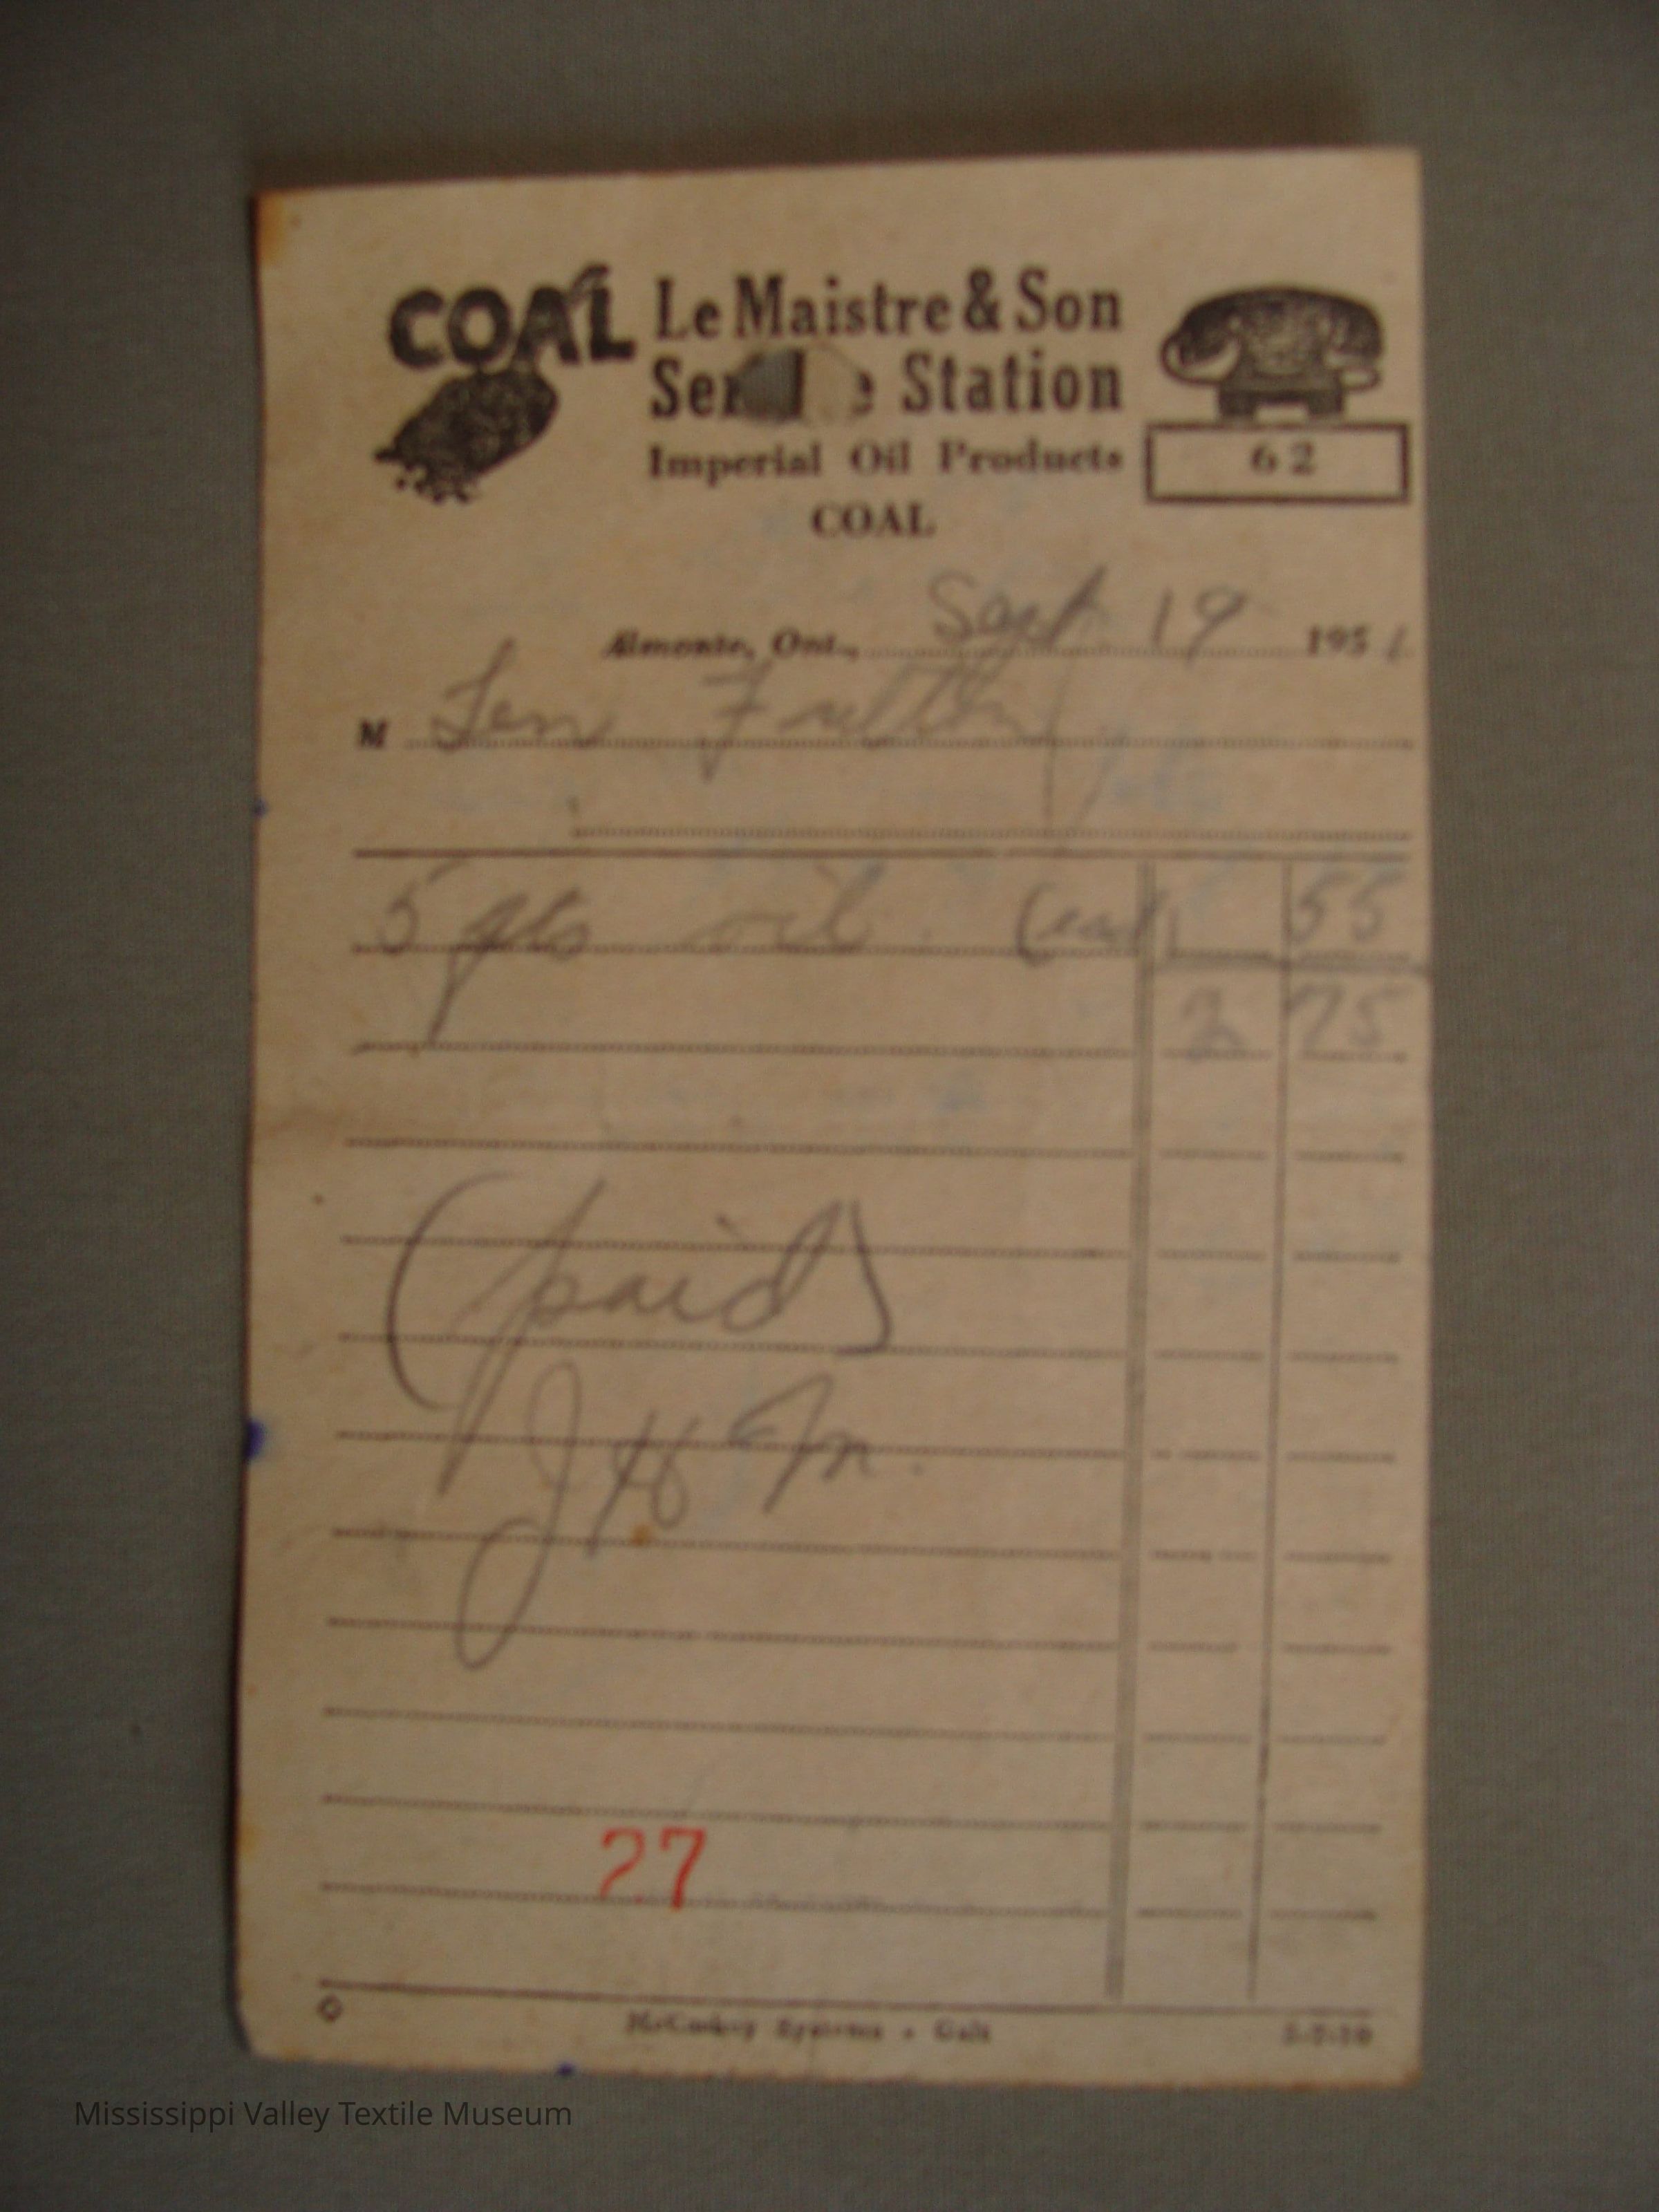 COAL
Le Maistre & Son
Ser e Station
Imperial Oil Products
COAL
62
Almonte, Ont., Sept 19 1951
M Len Fulton
5 qts oil. 55
2 75
(paid)
27
McCaskey Systems • Galt
Mississippi Valley Textile Museum